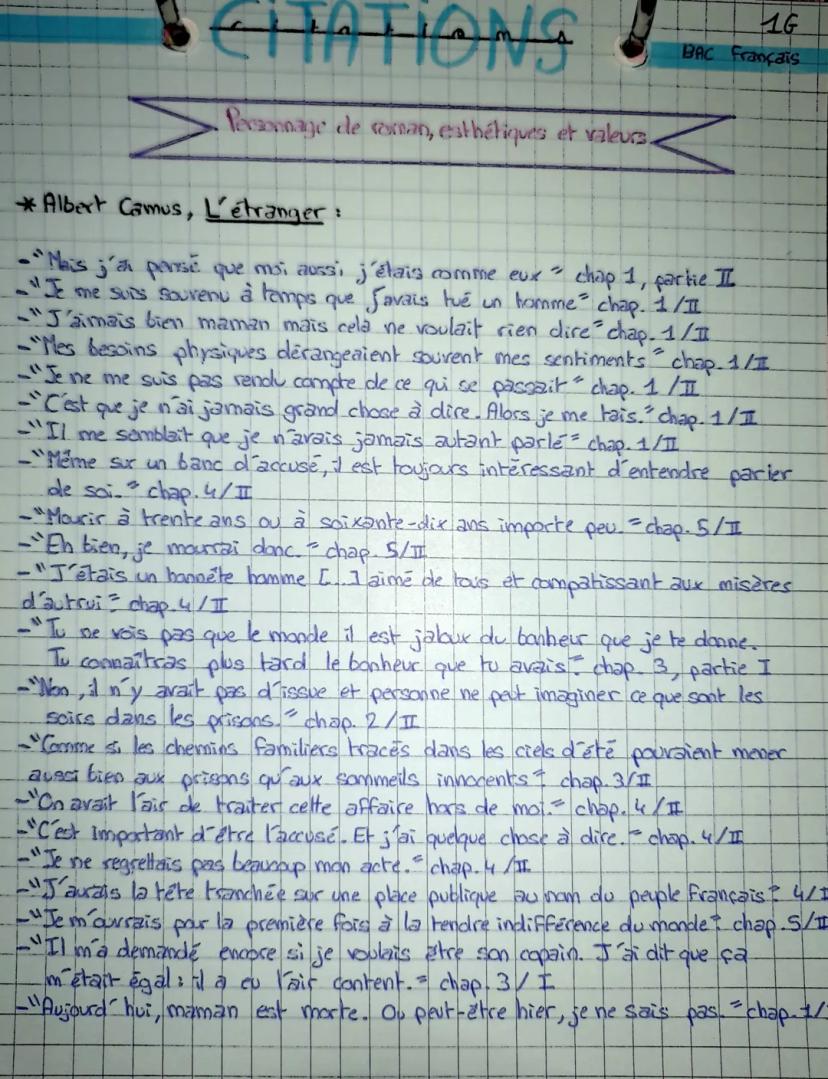 CITATIONS
citations
1G
BAC Français
Personnage de roman, esthétiques et valeurs.
* Albert Camus, L'étranger :
- "Mais j'ai pensé que moi aussi, j'étais comme eux" chap 1, partie II
- "Je me suis souvenu à temps que j'avais tué un homme" chap. 1/II
- "J'aimais bien maman mais cela ne voulait rien dire" chap. 1/II
- "Mes besoins physiques dérangeaient souvent mes sentiments" chap. 1/II
- "Je ne me suis pas rendu compte de ce qui se passait" chap. 1/II
- "C'est que je n'ai jamais grand chose à dire. Alors je me tais." chap. 1/II
- "Il me semblait que je n'avais jamais autant parlé" chap. 1/II
- "Même sur un banc d'accusé, il est toujours intéressant d'entendre parler
de soi." chap. 4/II
- "Mourir à trente ans ou à soixante-dix ans importe peu." chap. 5/II
- "Eh bien, je mourrai donc." chap. 5/II
- "J'étais un honnête homme [...] aimé de tous et compatissant aux misères
d'autrui" chap. 4/II
- "Tu ne vois pas que le monde il est jaloux du bonheur que je te donne.
Tu connaîtras plus tard le bonheur que tu avais". chap. 3, partie I
- "Non, il n'y avait pas d'issue et personne ne peut imaginer ce que sont les
soirs dans les prisons." chap. 2/II
- "Comme si les chemins familiers tracés dans les ciels d'été pouvaient mener
aussi bien aux prisons qu'aux sommeils innocents". chap. 3/II
- "On avait l'air de traiter cette affaire hors de moi." chap. 4/II
- "C'est important d'être l'accusé. Et j'ai quelque chose à dire." chap. 4/II
- "Je ne regrettais pas beaucoup mon acte." chap. 4/II
- "J'aurais la tête tranchée sur une place publique au nom du peuple français". 4/I
- "Je m'ouvrais pour la première fois à la tendre indifférence du monde". chap. 5/II
- "Il m'a demandé encore si je voulais être son copain. J'ai dit que ça
m'était égal : il a eu l'air content." chap. 3/I
- "Aujourd'hui, maman est morte. Ou peut-être hier, je ne sais pas." chap. 1/